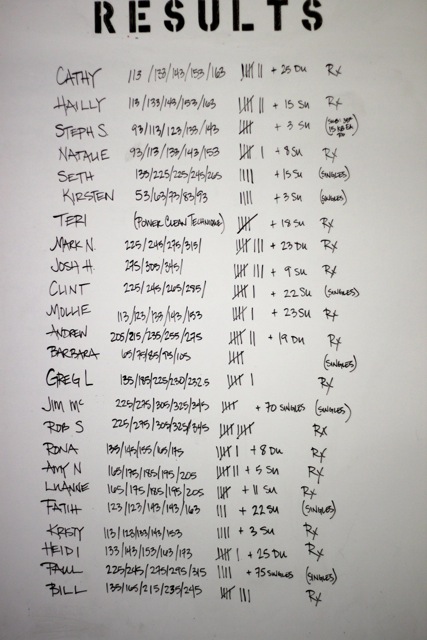 RESULTS
CATHY 113/133/143/153/163 |||| || + 25 DU Rx
HAILLY 113/133/143/153/163 |||| || + 15 SU Rx
STEPH S. 93/113/123/133/143 |||| + 3 SU
NATALIE 93/113/133/143/153 |||| | + 8 SU Rx
SETH 135/225/225/245/265 |||| + 15 SU (SINGLES)
KIRSTEN 53/63/73/83/93 |||| + 3 SU (SINGLES)
TERI (POWER CLEAN TECHNIQUE) |||| + 18 SU Rx
MARK N. 225/245/275/315/ |||| ||| + 23 DU Rx
JOSH H. 275/305/345/ |||| ||| + 9 SU Rx
CLINT 225/245/265/285/ |||| | + 22 SU (SINGLES)
MOLLIE 113/123/133/143/153 |||| | + 23 SU Rx
ANDREW 205/215/235/255/275 |||| || + 19 DU Rx
BARBARA 65/75/85/95/105 |||| (SINGLES)
GREG L 135/185/225/230/232.5 |||| | Rx
JIM MC 225/275/305/325/345 |||| + 70 SINGLES (SINGLES)
ROB S 225/275/305/325/345 |||| |||| Rx
RONA 135/145/155/165/175 |||| | + 8 DU Rx
AMY N 165/175/185/195/205 |||| || + 5 SU Rx
LUANNE 165/175/185/195/205 |||| + 11 SU Rx
FATIH 123/123/143/143/163 ||| + 22 SU (SINGLES)
KRISTY 113/123/133/143/153 |||| + 3 SU Rx
HEIDI 133/143/153/163/173 |||| | + 25 DU Rx
PAUL 225/245/275/295/315 |||| + 75 SINGLES (SINGLES)
BILL 135/165/215/235/245 |||| ||| Rx